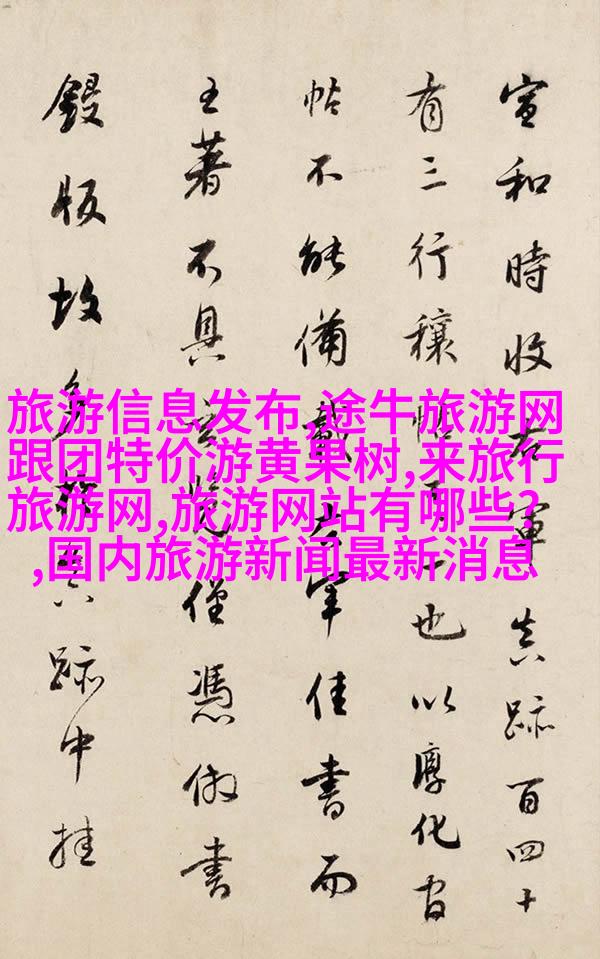 宣和時收右軍真跡百四十
有三行穰帖其一也以淳化官
帖不能備載右軍佳書而
王著不具玄覽僅憑倣書
鋟版故多於真跡中挂
旅游信息发布,途牛旅游网
跟团特价游黄果树,来旅行
旅游网,旅游网站有哪些?
,国内旅游新闻最新消息